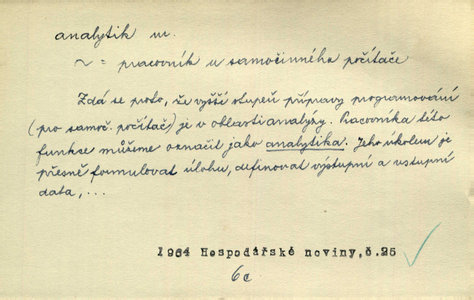 analytik m.
~ = pracovník u samočinného počítače
Zdá se proto, že vyšší stupeň přípravy programování
(pro samoč. počítač) je v oblasti analysy. Pracovníka této
funkce můžeme označit jako analytika. Jeho úkolem je
přesně formulovat úlohu, definovat výstupní a vstupní
data, ...
1964 Hospodářské noviny, č. 25
6c